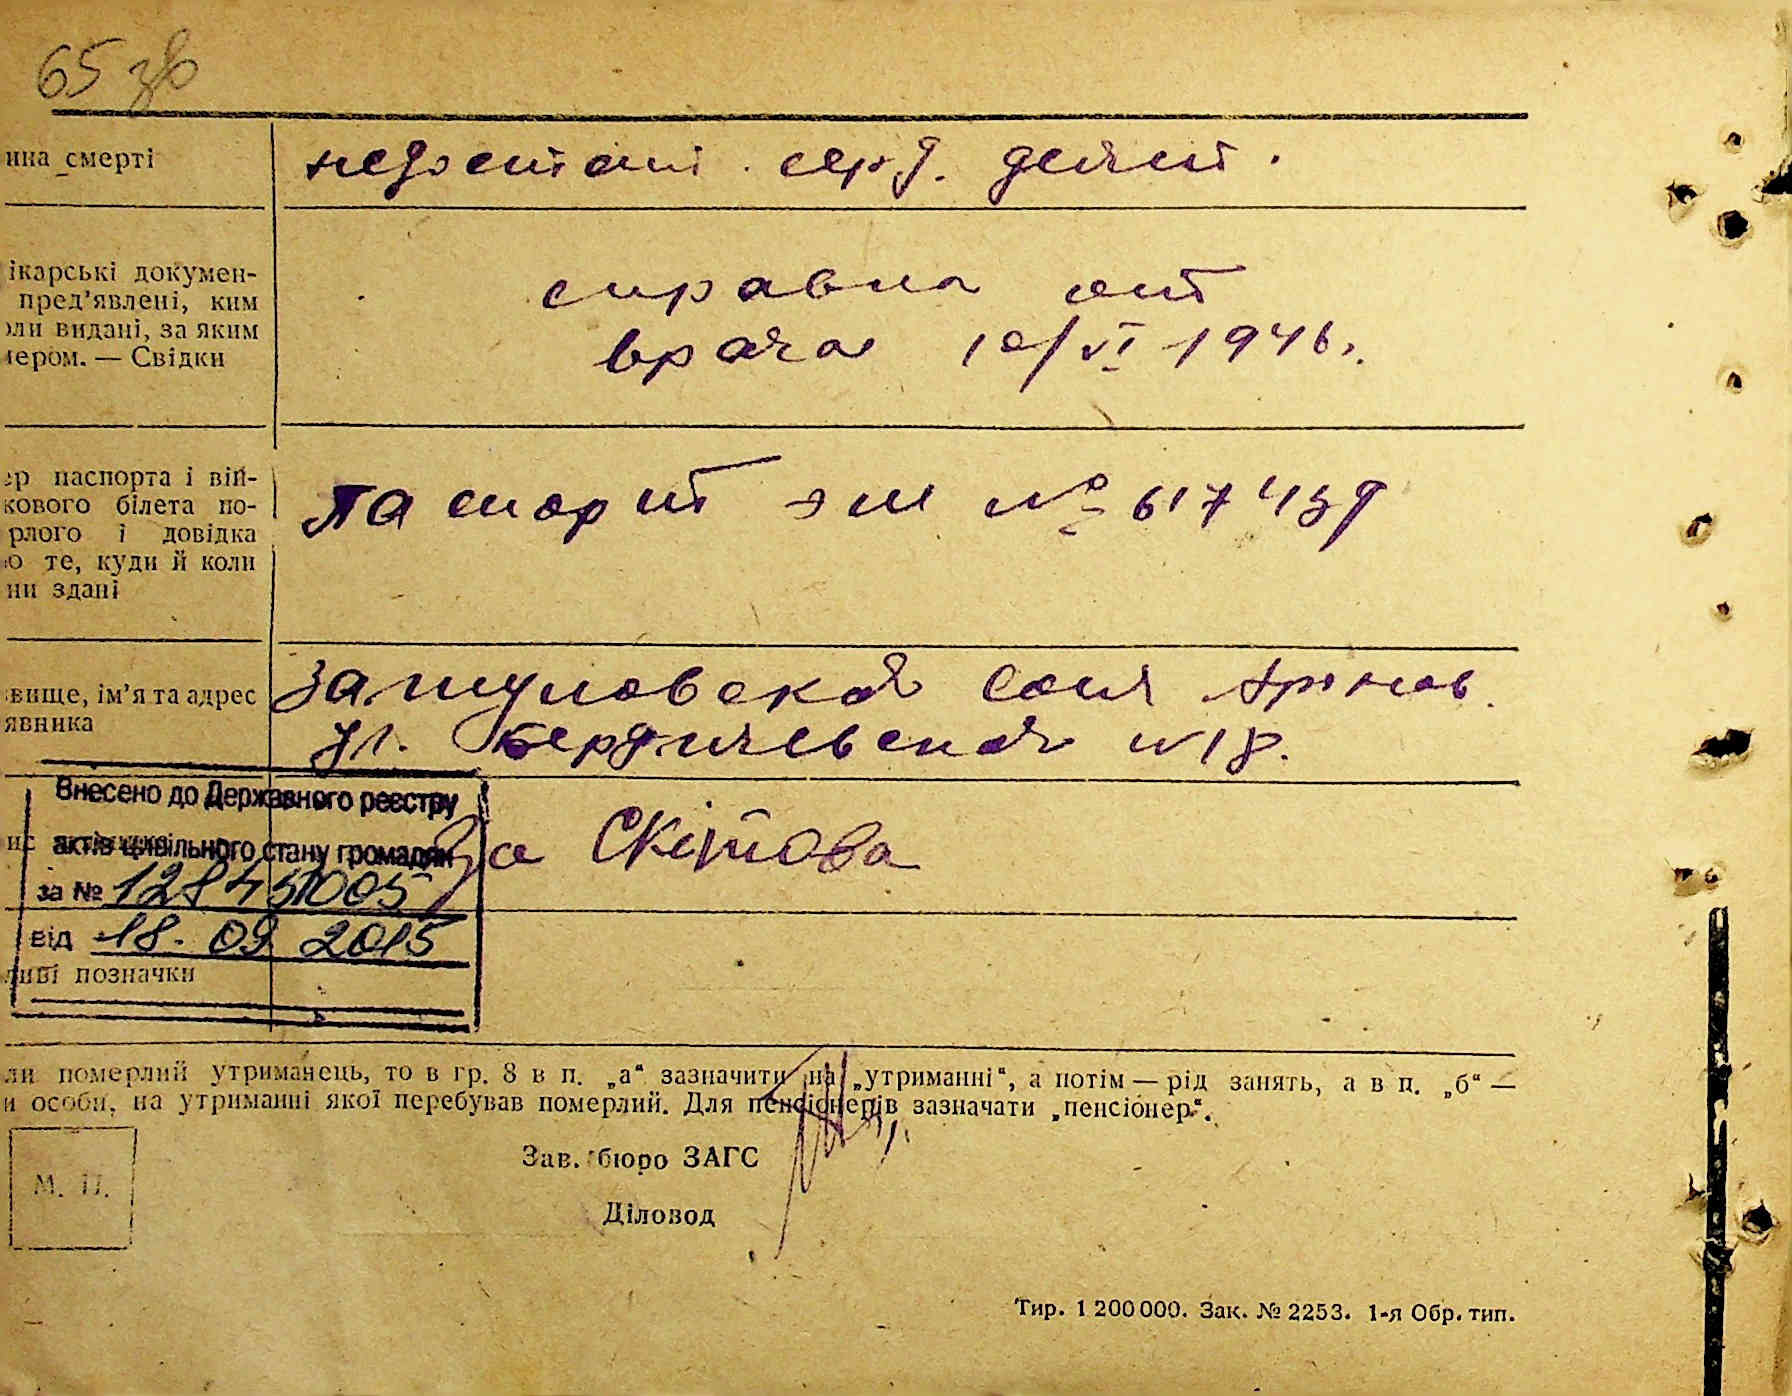 65 зв
ина смерті
недостат. серд. деят.
ікарські докумен-
пред’явлені, ким
оли видані, за яким
мером. — Свідки
справка от
врача 10/VI 1946г.
ер паспорта і вій-
кового білета по-
рлого і довідка
о те, куди й коли
ни здані
Паспорт № 617439
звище, ім’я та адрес
явника
Соня
ул. Бердичевская № 18.
Внесено до Державного реєстру
актів цивільного стану громадян
за № 128451005
від 18. 09 2015
За
ливі позначки
ли померлий утриманець, то в гр. 8 в п. „а“ зазначити „на утриманні“, а потім — рід занять, а в п. „б“ —
и особи, на утриманні якої перебував померлий. Для пенсіонерів зазначати „пенсіонер“.
М. П.
Зав. бюро ЗАГС
Діловод
Тир. 1 200 000. Зак. № 2253. 1-я Обр. тип.